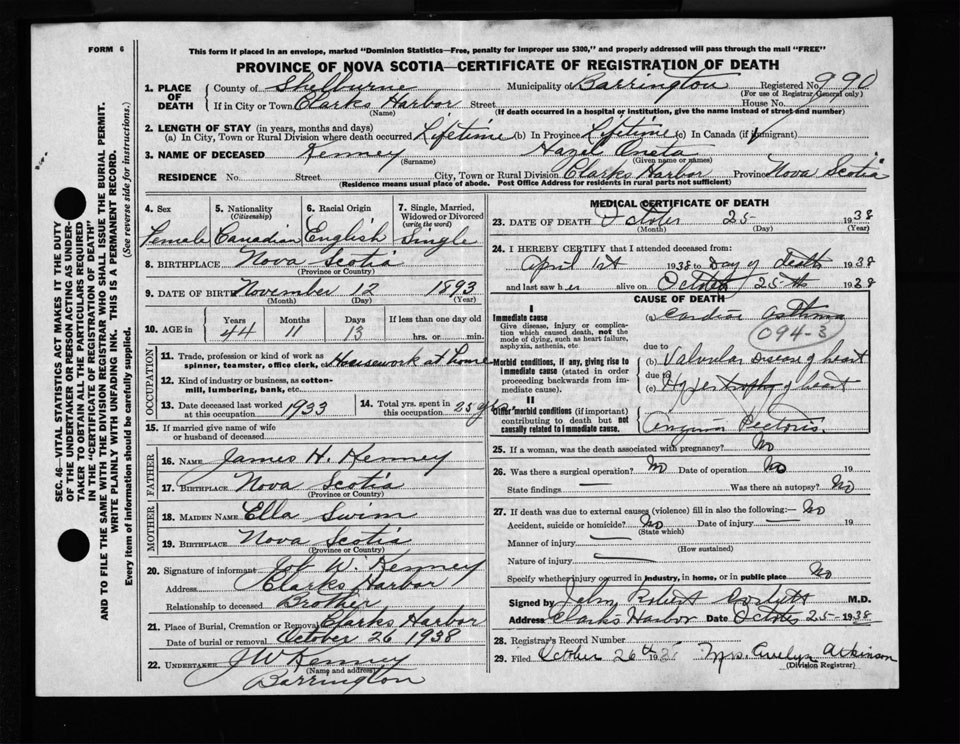 FORM 6
This form if placed in an envelope, marked "Dominion Statistics—Free, penalty for improper use $300," and properly addressed will pass through the mail "FREE"
PROVINCE OF NOVA SCOTIA—CERTIFICATE OF REGISTRATION OF DEATH
SEC. 46—VITAL STATISTICS ACT MAKES IT THE DUTY
OF THE UNDERTAKER OR PERSON ACTING AS UNDER-
TAKER TO OBTAIN ALL THE PARTICULARS REQUIRED
IN THE "CERTIFICATE OF REGISTRATION OF DEATH"
AND TO FILE THE SAME WITH THE DIVISION REGISTRAR WHO SHALL ISSUE THE BURIAL PERMIT.
WRITE PLAINLY WITH UNFADING INK. THIS IS A PERMANENT RECORD.
Every item of information should be carefully supplied. (See reverse side for instructions.)
1. PLACE OF DEATH
County of Shelburne Municipality of Barrington Registered No. 990
(For use of Registrar General only)
If in City or Town Clarks Harbor Street House No.
(Name) (If death occurred in a hospital or institution, give the name instead of street and number)
2. LENGTH OF STAY (in years, months and days)
(a) In City, Town or Rural Division where death occurred Lifetime (b) In Province Lifetime (c) In Canada (if immigrant)
3. NAME OF DECEASED Kenney Hazel Oneta
(Surname) (Given name or names)
RESIDENCE No. Street City, Town or Rural Division Clarks Harbor Province Nova Scotia
(Residence means usual place of abode. Post Office Address for residents in rural parts not sufficient)
4. Sex 5. Nationality (Citizenship) 6. Racial Origin 7. Single, Married, Widowed or Divorced (write the word)
Female Canadian English Single
8. BIRTHPLACE Nova Scotia
(Province or Country)
9. DATE OF BIRTH November 12 1893
(Month) (Day) (Year)
10. AGE in Years Months Days If less than one day old
44 11 13 hrs. or min.
OCCUPATION
11. Trade, profession or kind of work as spinner, teamster, office clerk, etc. Housework at home
12. Kind of industry or business, as cotton-mill, lumbering, bank, etc.
13. Date deceased last worked at this occupation 1933 14. Total yrs. spent in this occupation 25 yrs.
15. If married give name of wife or husband of deceased
FATHER
16. Name James H. Kenney
17. Birthplace Nova Scotia
(Province or Country)
MOTHER
18. Maiden Name Ella Swim
19. Birthplace Nova Scotia
(Province or Country)
20. Signature of informant W. Kenney
Address Clarks Harbor
Relationship to deceased Brother
21. Place of Burial, Cremation or Removal Clarks Harbor
Date of burial or removal October 26 1938
22. UNDERTAKER J W Kenney
(Name and address)
Barrington
MEDICAL CERTIFICATE OF DEATH
23. DATE OF DEATH October 25- 1938
(Month) (Day) (Year)
24. I HEREBY CERTIFY that I attended deceased from:
April 1st 1938 to Day of death 1938
and last saw her alive on October 25th 1938
CAUSE OF DEATH
I
Immediate cause (a) Cardiac asthma
Give disease, injury or complication which caused death, not the mode of dying, such as heart failure, asphyxia, asthenia, etc.
094-3
due to
Morbid conditions, if any, giving rise to immediate cause (stated in order proceeding backwards from immediate cause).
(b) Valvular Disease of heart
due to
(c) Hypertrophy of heart
II
Other morbid conditions (if important) contributing to death but not causally related to immediate cause.
Angina Pectoris.
25. If a woman, was the death associated with pregnancy? No
26. Was there a surgical operation? No Date of operation No 19
State findings — Was there an autopsy? No
27. If death was due to external causes (violence) fill in also the following:— No
Accident, suicide or homicide? No Date of injury — 19
(State which)
Manner of injury —
(How sustained)
Nature of injury —
Specify whether injury occurred in industry, in home, or in public place No
Signed by John Robert M.D.
Address Clarks Harbor Date October 25- 1938
28. Registrar's Record Number
29. Filed October 26th 193 Mrs. Evelyn Atkinson
(Division Registrar)